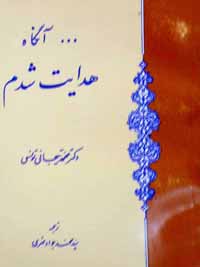 ... آنگاه
هدایت شدم
دکتر محمد تیجانی تونسی
ترجمه
سید محمد جواد مهری